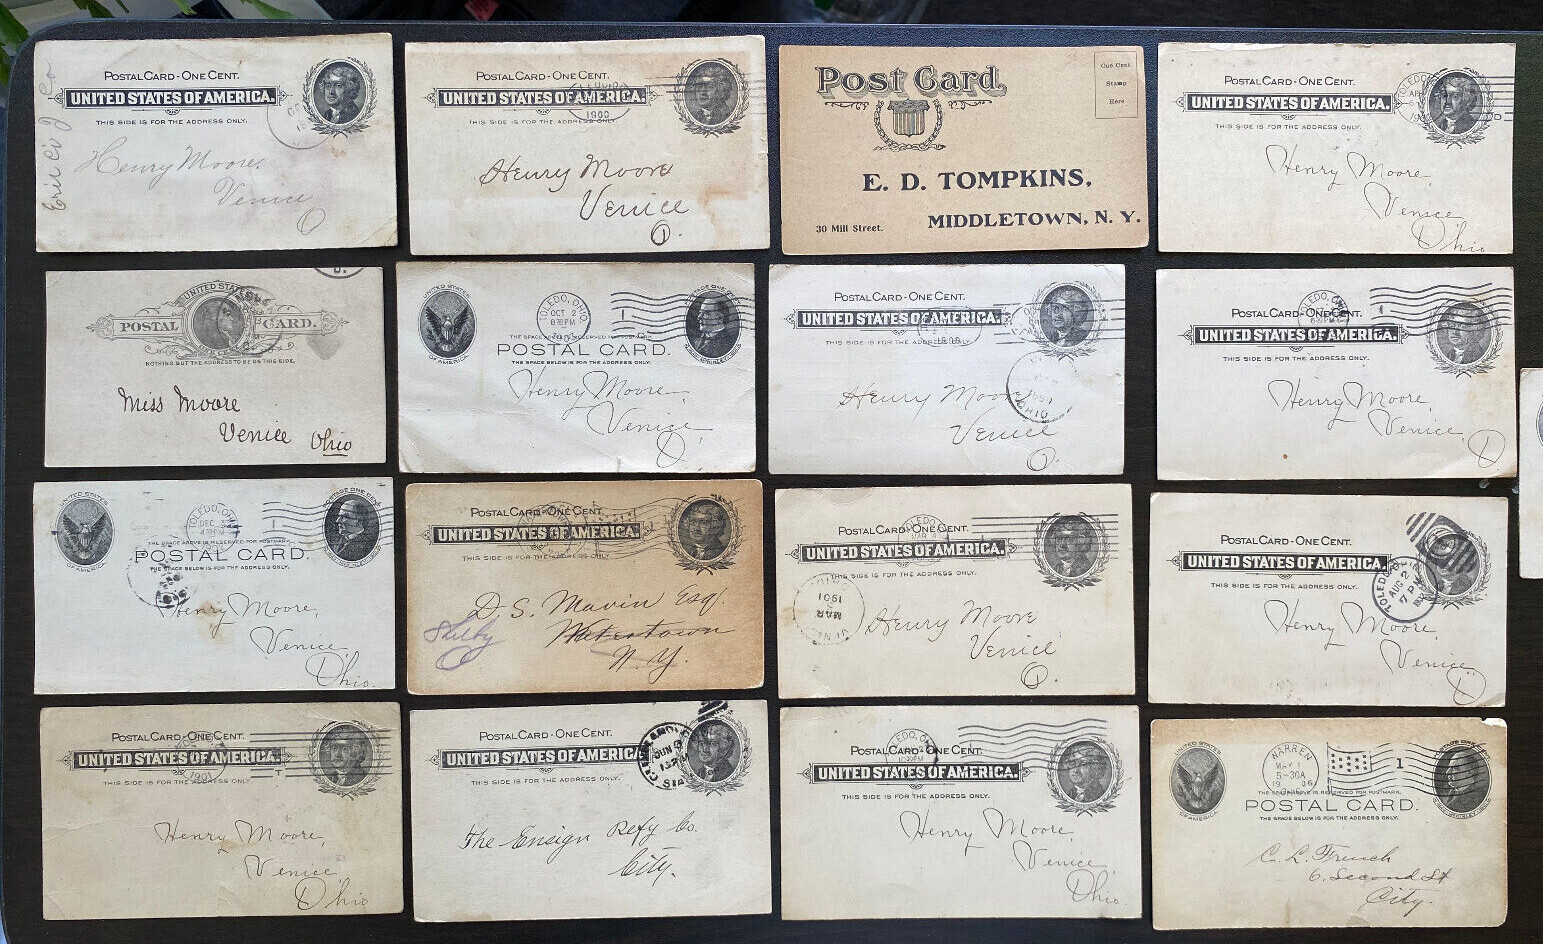 POSTAL CARD - ONE CENT.
UNITED STATES OF AMERICA.
THIS SIDE IS FOR THE ADDRESS ONLY.
Henry Moore.
Venice
O
POSTAL CARD - ONE CENT.
UNITED STATES OF AMERICA.
THIS SIDE IS FOR THE ADDRESS ONLY.
1900
Henry Moore
Venice
O.
Post Card
One Cent
Stamp
Here
E. D. TOMPKINS,
30 Mill Street.
MIDDLETOWN, N. Y.
POSTAL CARD - ONE CENT.
UNITED STATES OF AMERICA.
THIS SIDE IS FOR THE ADDRESS ONLY.
TOLEDO
Henry Moore
Venice
Ohio
UNITED STATES
POSTAL CARD.
NOTHING BUT THE ADDRESS TO BE ON THIS SIDE.
Miss Moore
Venice Ohio
UNITED STATES
OF AMERICA
TOLEDO, OHIO
OCT 2
8 30 PM
1
THE SPACE ABOVE IS RESERVED FOR POSTMARK.
POSTAL CARD.
THE SPACE BELOW IS FOR THE ADDRESS ONLY.
Henry Moore
Venice
O
POSTAL CARD - ONE CENT.
UNITED STATES OF AMERICA.
THIS SIDE IS FOR THE ADDRESS ONLY.
OHIO
Henry Moore
Venice
O.
POSTAL CARD - ONE CENT.
UNITED STATES OF AMERICA.
THIS SIDE IS FOR THE ADDRESS ONLY.
TOLEDO, OHIO
1
Henry Moore
Venice,
O
UNITED STATES
OF AMERICA
POSTAGE ONE CENT
TOLEDO, OHIO
DEC 3
1
THE SPACE ABOVE IS RESERVED FOR POSTMARK.
POSTAL CARD.
THE SPACE BELOW IS FOR THE ADDRESS ONLY.
Henry Moore,
Venice
Ohio.
POSTAL CARD - ONE CENT.
UNITED STATES OF AMERICA.
THIS SIDE IS FOR THE ADDRESS ONLY.
D. S. Mavin Esq
Watertown
N. Y.
Shelby
O
POSTAL CARD - ONE CENT.
UNITED STATES OF AMERICA.
THIS SIDE IS FOR THE ADDRESS ONLY.
TOLEDO
MAR
1901
Henry Moore
Venice
O.
POSTAL CARD - ONE CENT.
UNITED STATES OF AMERICA.
THIS SIDE IS FOR THE ADDRESS ONLY.
TOLEDO, OHIO
AUG 2
7 PM
Henry Moore,
Venice
O
POSTAL CARD - ONE CENT.
UNITED STATES OF AMERICA.
THIS SIDE IS FOR THE ADDRESS ONLY.
1901
Henry Moore,
Venice,
Ohio
POSTAL CARD - ONE CENT.
UNITED STATES OF AMERICA.
THIS SIDE IS FOR THE ADDRESS ONLY.
CLEVELAND, O
JUN
The Ensign Refy Co.
City.
POSTAL CARD - ONE CENT.
UNITED STATES OF AMERICA.
THIS SIDE IS FOR THE ADDRESS ONLY.
Henry Moore,
Venice,
Ohio.
UNITED STATES
OF AMERICA
WARREN
MAY 1
5-30A
1906
1
THE SPACE ABOVE IS RESERVED FOR POSTMARK.
POSTAL CARD.
THE SPACE BELOW IS FOR THE ADDRESS ONLY.
C. L. French
6. Second St
City.